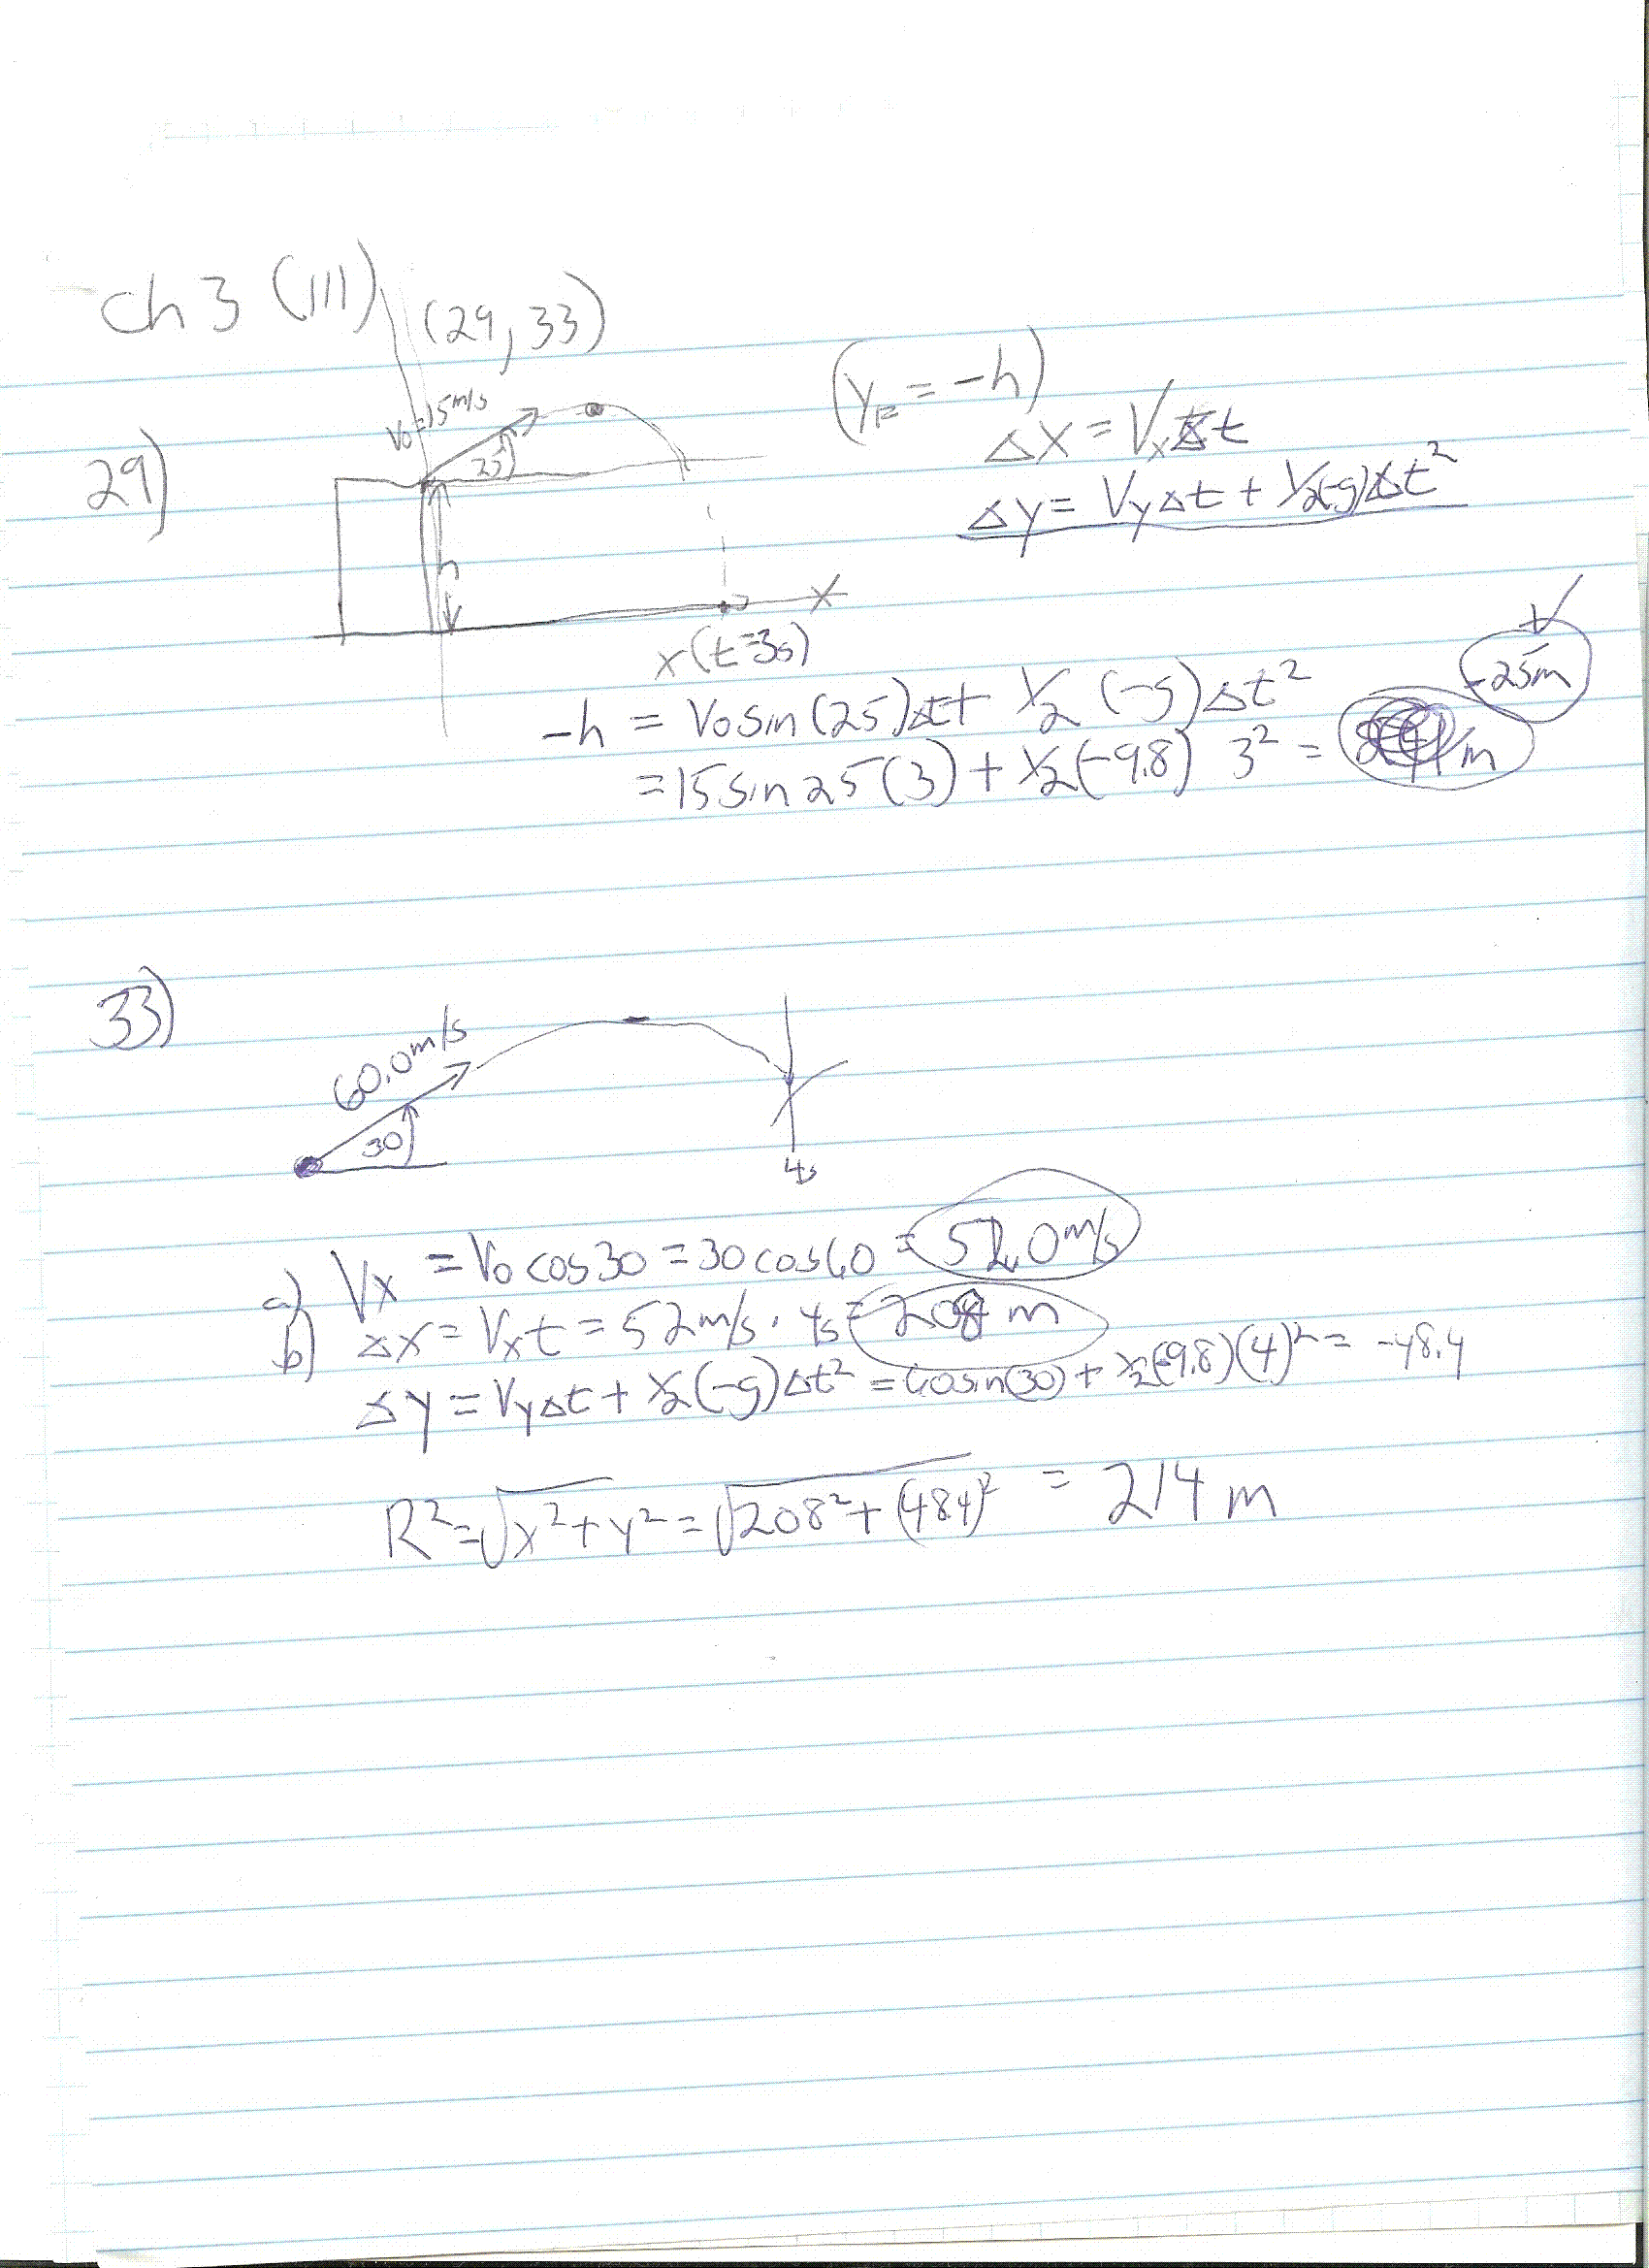 ch 3 (III) (29, 33)
(y_F = -h)
29)
V₀=15 m/s
25
h
Δx = VₓΔt
Δy = V_yΔt + ½(-g)Δt²
x
x(t=3s)
-25m
-h = V₀ sin(25)Δt + ½ (-g) Δt²
= 15 sin 25 (3) + ½(-9.8) 3² = m
33)
60.0 m/s
30
4s
a) Vx = V₀ cos 30 = 30 cos 60 = 52.0 m/s
b) Δx = Vₓt = 52 m/s · 4s = 208 m
Δy = V_yΔt + ½(-g)Δt² = 60 sin(30) + ½(-9.8)(4)² = -48.4
R² = √x² + y² = √208² + (484)² = 214 m